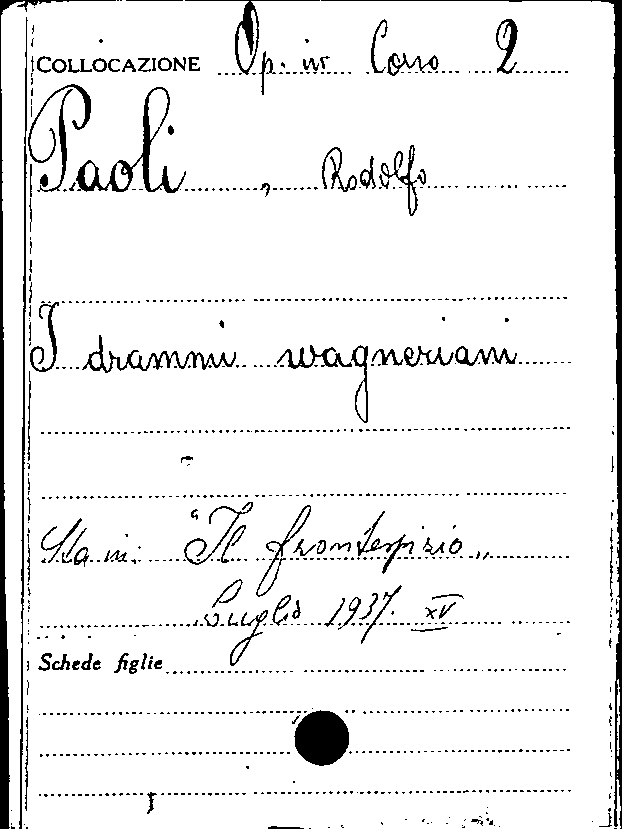 COLLOCAZIONE Op. in Corso 2
Paoli, Rodolfo
I drammi wagneriani
Sta in: "Il frontespizio„
Luglio 1937. XV
Schede figlie